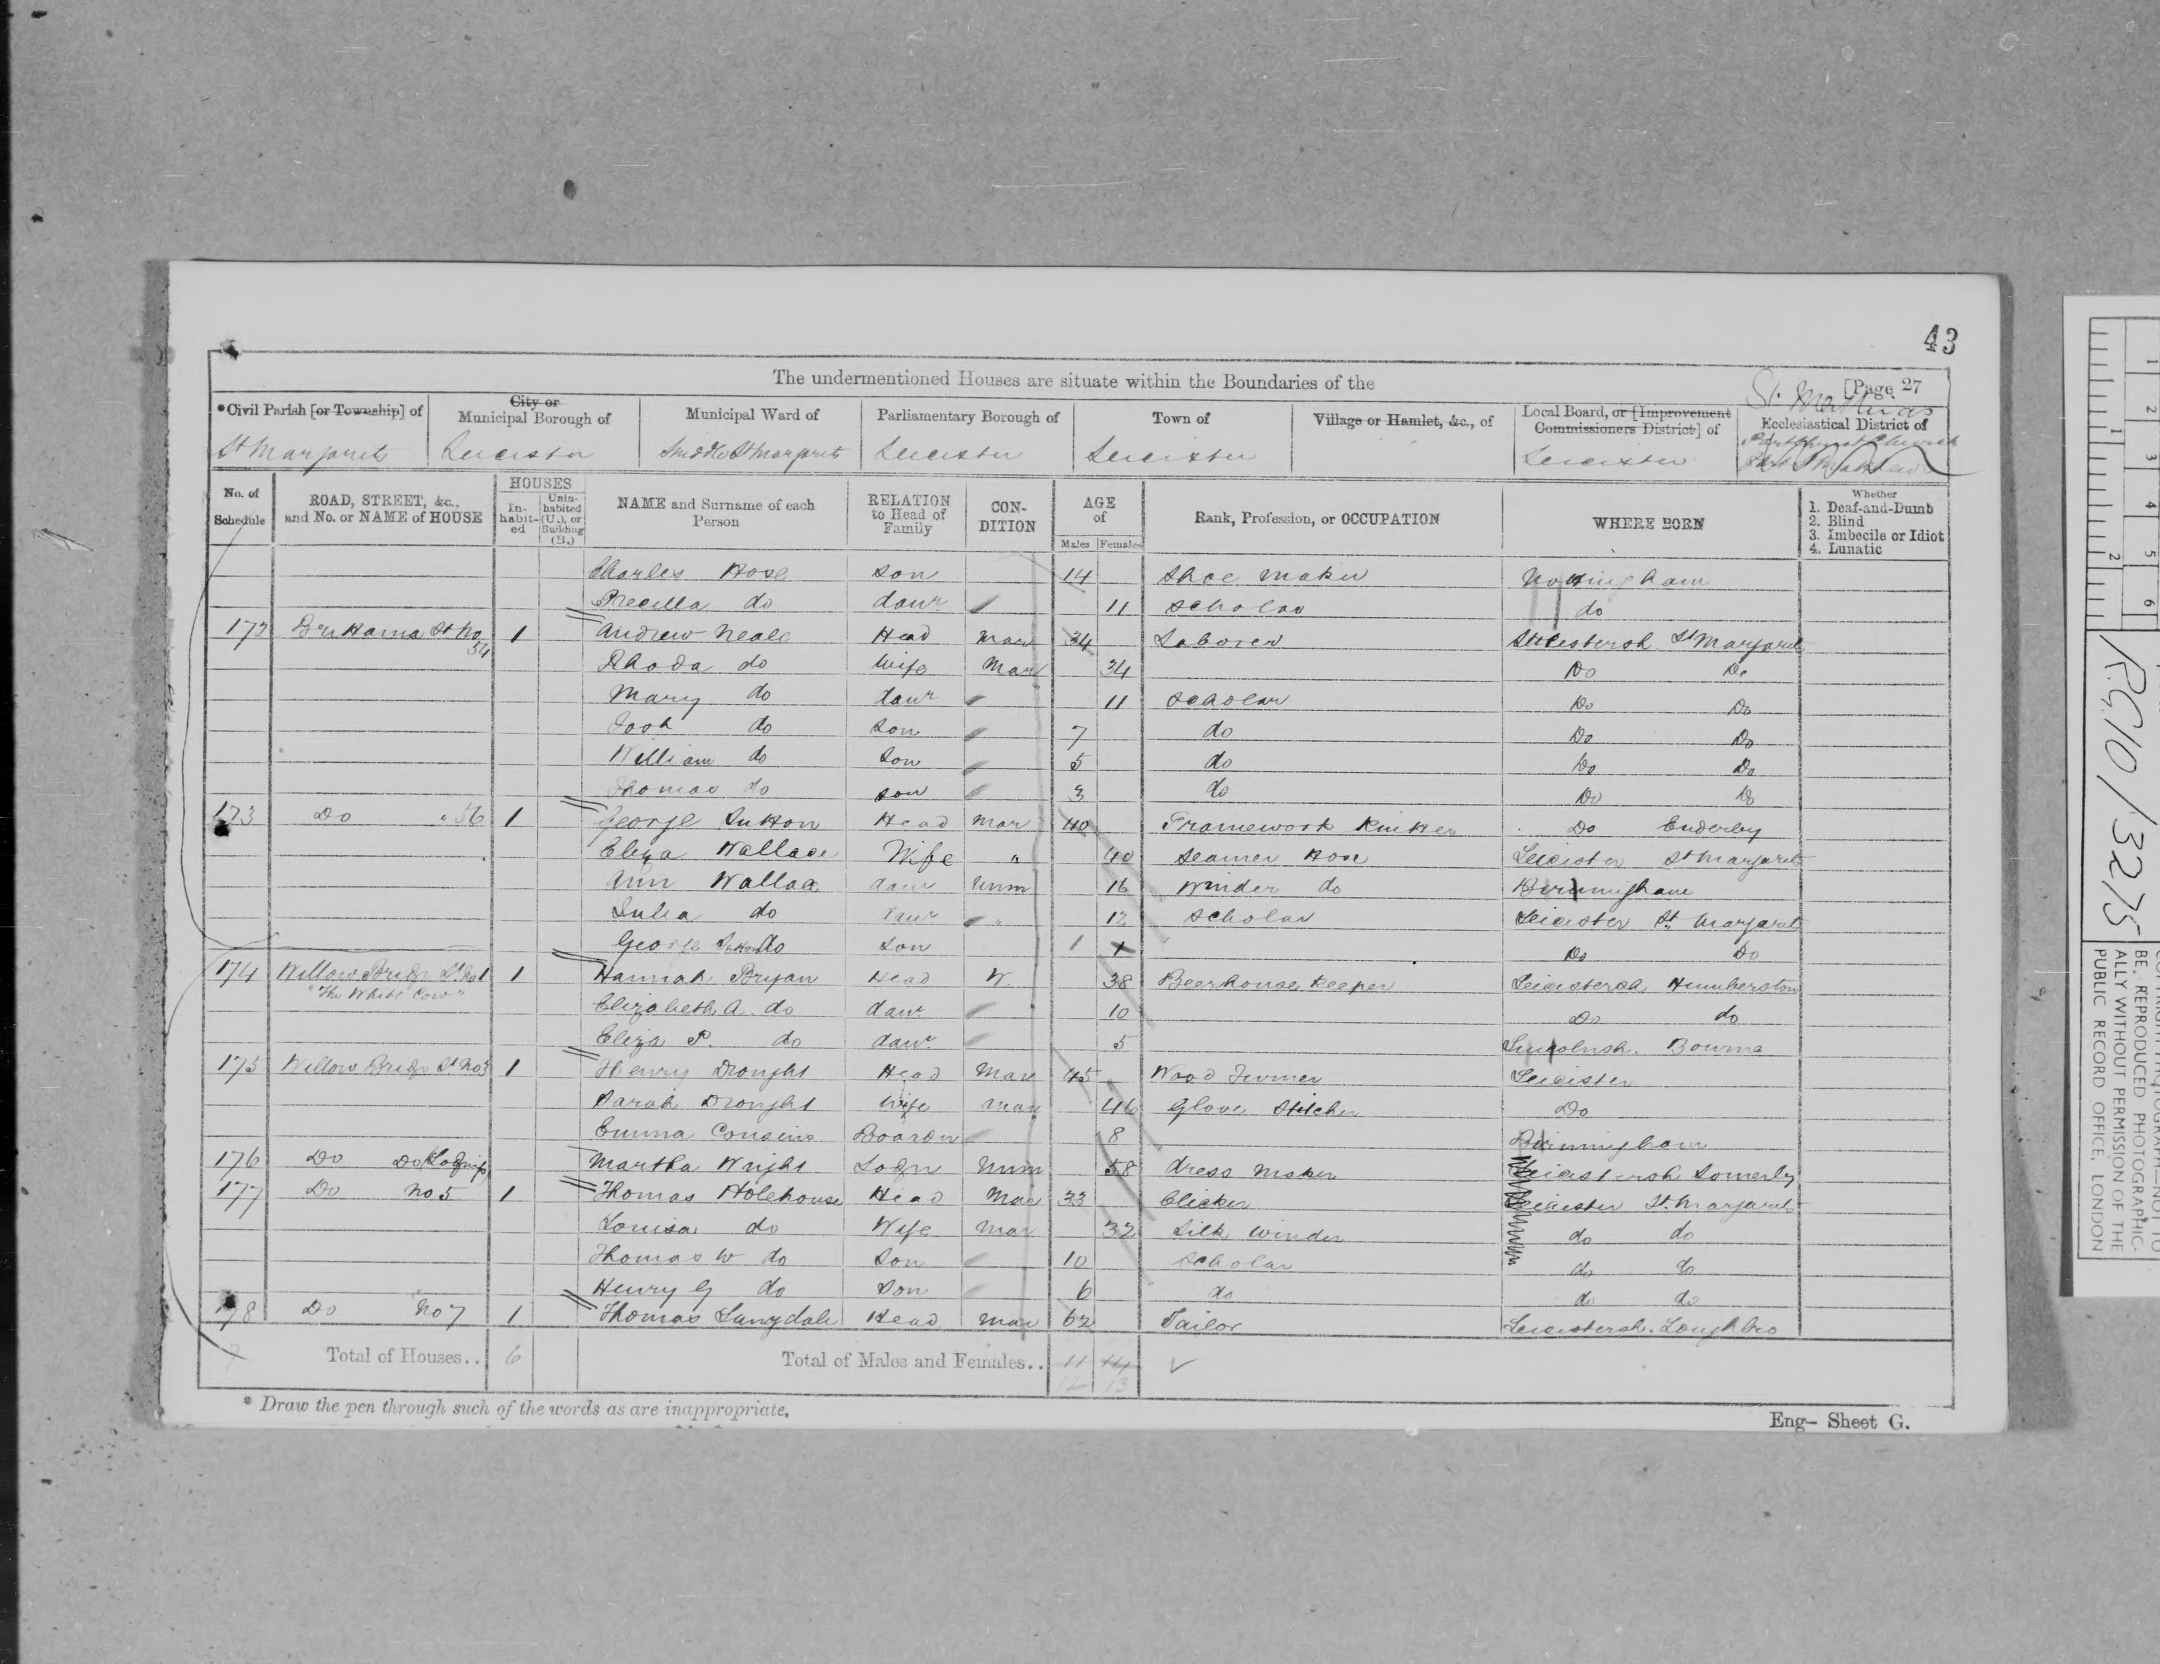 43
The undermentioned Houses are situate within the Boundaries of the
[Page 27
St. Matthias
*Civil Parish [or Township] of
City or Municipal Borough of
Municipal Ward of
Parliamentary Borough of
Town of
Village or Hamlet, &c., of
Local Board, or [Improvement Commissioners District] of
Ecclesiastical District of
St Margarets Leicester Middle St Margarets Leicester Leicester Leicester
No. of Schedule
ROAD, STREET, &c., and No. or NAME of HOUSE
HOUSES
In-habit-ed
Unin-habited (U.), or Building (B.)
NAME and Surname of each Person
RELATION to Head of Family
CON-DITION
AGE of
Males Females
Rank, Profession, or OCCUPATION
WHERE BORN
Whether
1. Deaf-and-Dumb
2. Blind
3. Imbecile or Idiot
4. Lunatic
Charles Hose son 14 Shoe maker Nottingham
Precilla do daur 11 Scholar do
172 St No 34 1 Andrew Neale Head Mar 34 Laborer Leicestersh St Margarets
Rhoda do Wife Mar 34 Do Do
Mary do daur 11 Scholar Do Do
do Son 7 do Do Do
William do Son 5 do Do Do
Thomas do son 3 do Do Do
173 Do 36 1 George Sutton Head Mar 40 Framework Knitter Do Enderby
Eliza Wallace Wife " 40 Seamer Hose Leicester St Margarets
Ann Wallace daur Unm 16 Winder do Birmingham
Julia do daur 12 Scholar Leicester St Margarets
George Sutton do son 1 Do Do
174 Willow Bridge St No 1 1 Hannah Bryan Head W 38 Beerhouse Keeper Leicestersh Humberston
"The White Cow"
Elizabeth A. do daur 10 Do do
Eliza P. do daur 5 Lincolnsh. Bourne
175 Willow Bridge St No 3 1 Henry Drought Head Mar 45 Wood Turner Leicester
Sarah Drought Wife Mar 46 Glove Stitcher Do
Emma Cousins Boarder 8 Birmingham
176 Do Do Lodgings Martha Wright Lodgr Unm 58 dress Maker Leicestersh Somerby
177 Do No 5 1 Thomas Holehouse Head Mar 33 Clicker Leicester St. Margarets
Louisa do Wife Mar 32 Silk winder do do
Thomas W do Son 10 Scholar do do
Henry G do Son 6 do do do
178 Do No 7 1 Thomas Langdale Head Mar 62 Tailor Leicestersh. Loughbro
Total of Houses.. 6 Total of Males and Females.. 11 14
12 13
* Draw the pen through such of the words as are inappropriate.
Eng- Sheet G.
1 2 3 4 5 6
1 2
R.G.10/3275
BE REPRODUCED PHOTOGRAPHIC-
ALLY WITHOUT PERMISSION OF THE
PUBLIC RECORD OFFICE, LONDON